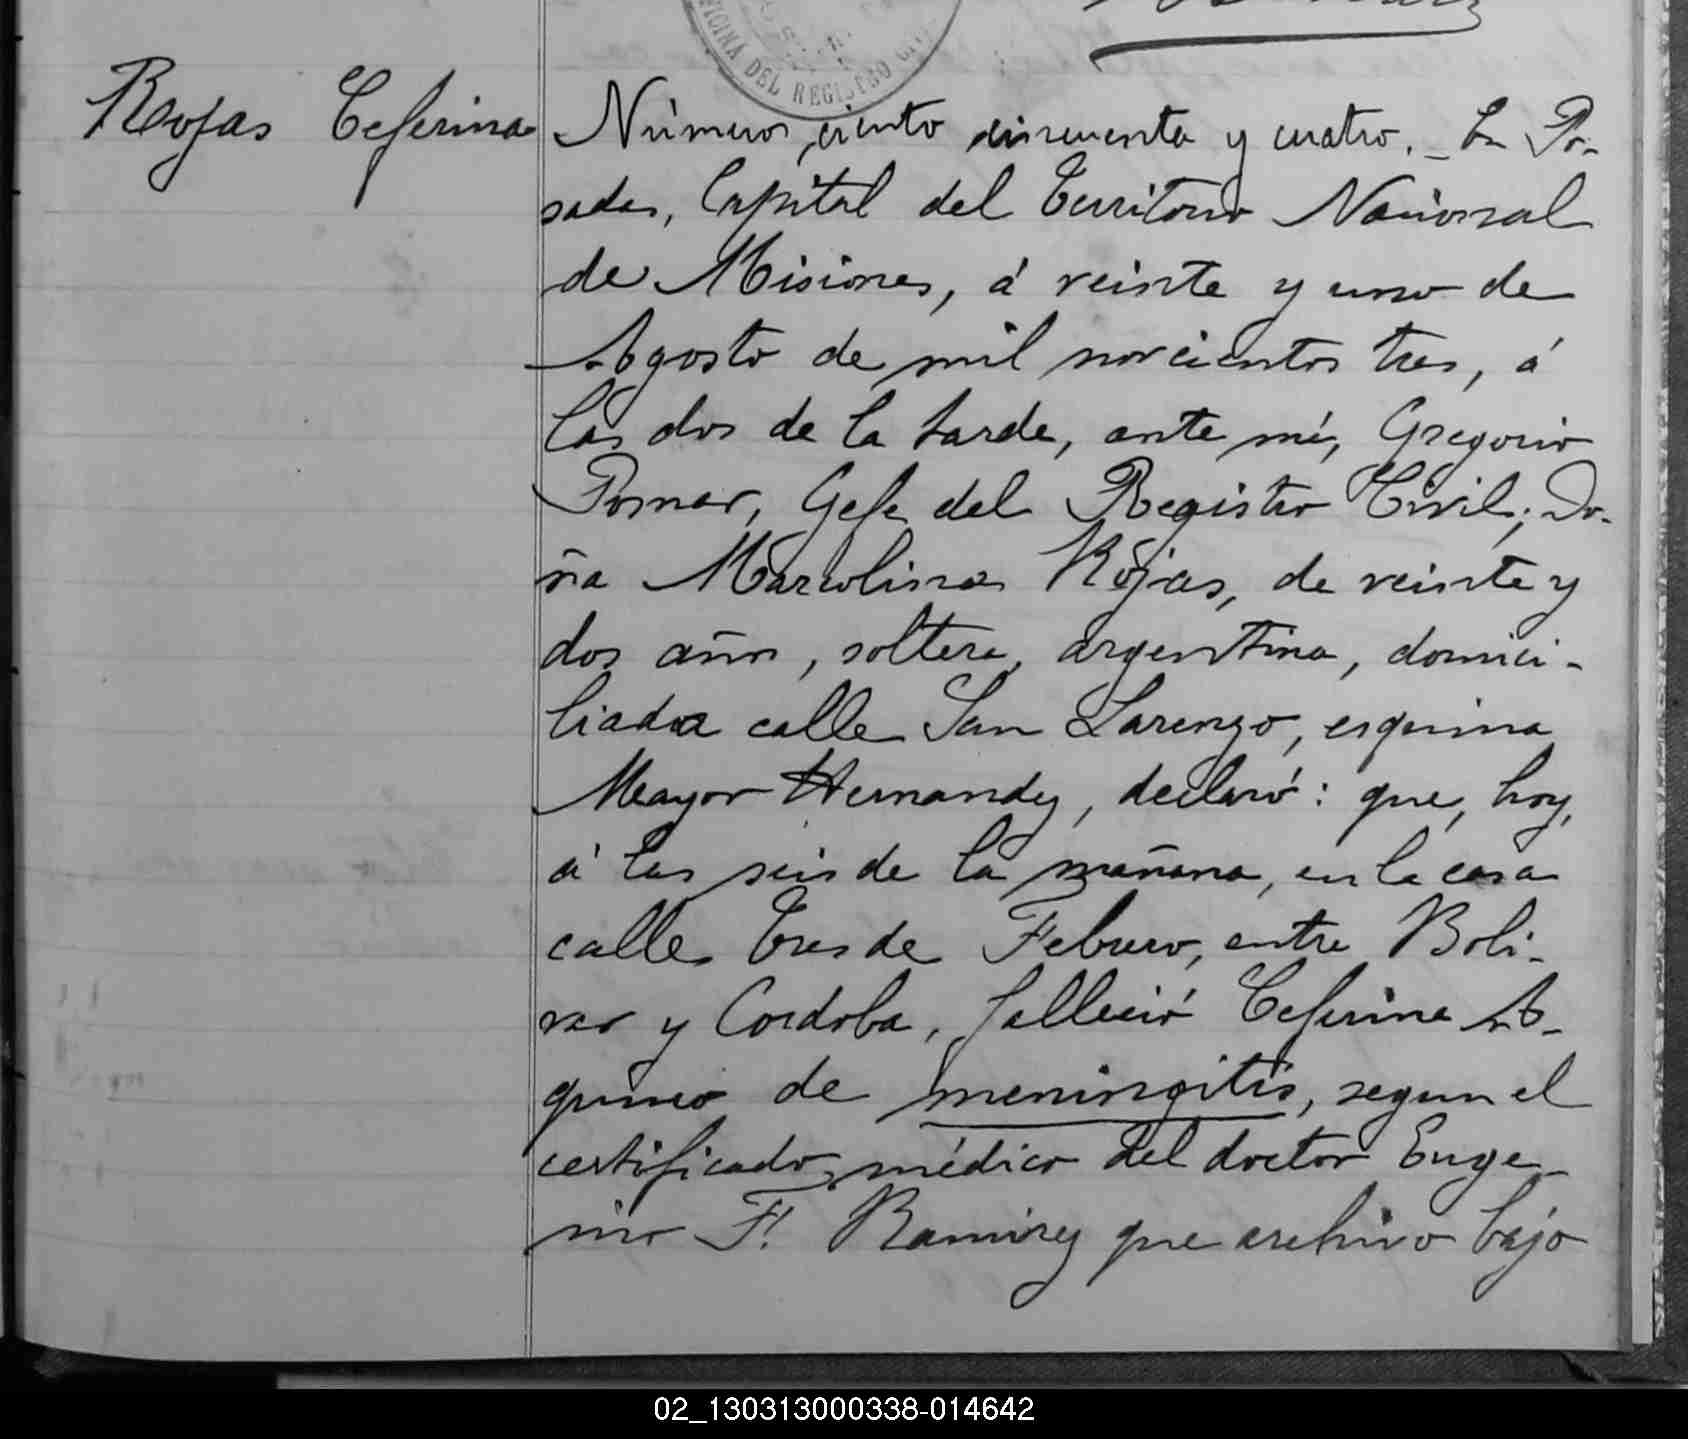 OFICINA DEL REGISTRO CIVIL
Rojas Ceferina
Número ciento cincuenta y cuatro. _ En Po-
sadas, Capital del Territorio Nacional
de Misiones, á veinte y uno de
Agosto de mil novecientos tres, á
las dos de la tarde, ante mí, Gregorio
Pomar, Gefe del Registro Civil; Do-
ña Marcolina Rojas, de veinte y
dos años, soltera, argentina, domici-
liada calle San Lorenzo, esquina
Mayor Hernandez, declaró: que, hoy,
á las seis de la mañana, en la casa
calle Tres de Febrero, entre Boli-
var y Cordoba, falleció Ceferina A-
quino de meningitis, segun el
certificado médico del doctor Euge-
nio F. Ramirez que archivo bajo
02_130313000338-014642